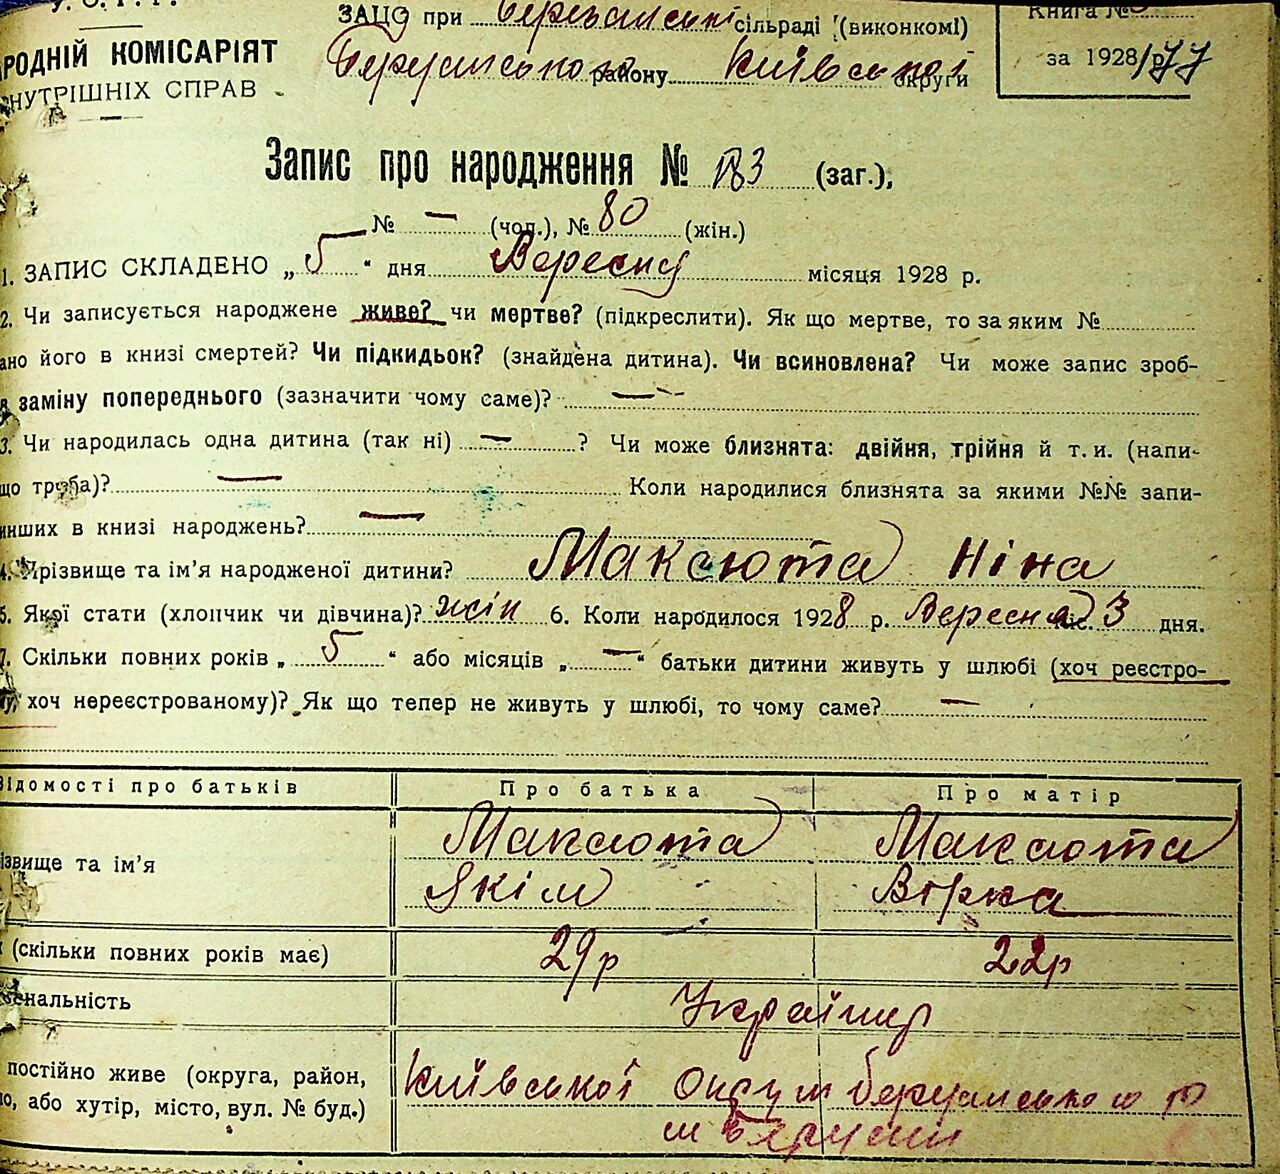 У. С. Р. Р.
ЗАЦС при Березанські сільраді (виконкомі)
Книга №
РОДНІЙ КОМІСАРІЯТ
району Київської округи
за 1928/р 77
НУТРІШНІХ СПРАВ
Запис про народження № 153 (заг.),
№ — (чол.), № 80 (жін.)
1. ЗАПИС СКЛАДЕНО „ 5 “ дня Вересня місяця 1928 р.
2. Чи записується народжене живе? чи мертве? (підкреслити). Як що мертве, то за яким №
ано його в книзі смертей? Чи підкидьок? (знайдена дитина). Чи всиновлена? Чи може запис зроб-
я заміну попереднього (зазначити чому саме)? —
3. Чи народилась одна дитина (так ні) — ? Чи може близнята: двійня, трійня й т. и. (напи-
що треба)? — Коли народилися близнята за якими №№ запи-
инших в книзі народжень? —
4. Прізвище та ім’я народженої дитини? Максюта Ніна
5. Якої стати (хлопчик чи дівчина)? жін 6. Коли народилося 1928 р. Вересня міс. 3 дня.
7. Скільки повних років „ 5 “ або місяців „ — “ батьки дитини живуть у шлюбі (хоч реєстро-
му, хоч нереєстрованому)? Як що тепер не живуть у шлюбі, то чому саме? —
Відомості про батьків Про батька Про матір
ізвище та ім’я Максюта Максюта
Якім Вірка
к (скільки повних років має) 29 р 22 р
ціональність Українці
постійно живе (округа, район, Київської Округи
ло, або хутір, місто, вул. № буд.)